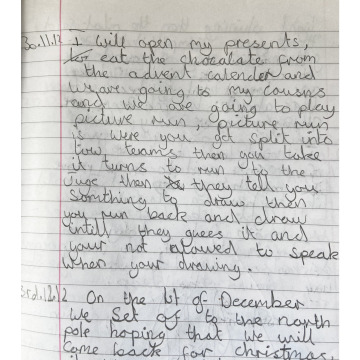 30.11.12 I will open my presents,
eat the chocalate from
the advent calender and
we are going to my cousns
and we are going to play
picture run, picture run
is were you get split into
tow teams then you take
it turns to run to the
juge then they tell you
somthing to draw then
you run back and draw
intill they guees it and
your not alowed to speak
when your drawing.
3rd.12.12 On the 1st of December
we set of to the north
pole hoping that we will
come back for christmas.